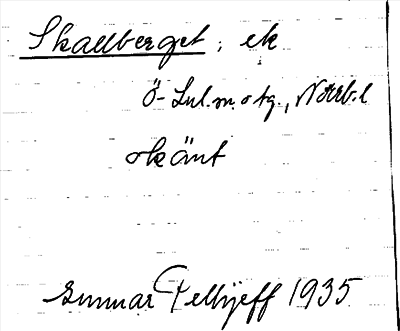 Skallberget ; ek
Ö-Lul. m. o tg., Norrb. l
okänt
Gunnar Pellijeff 1935